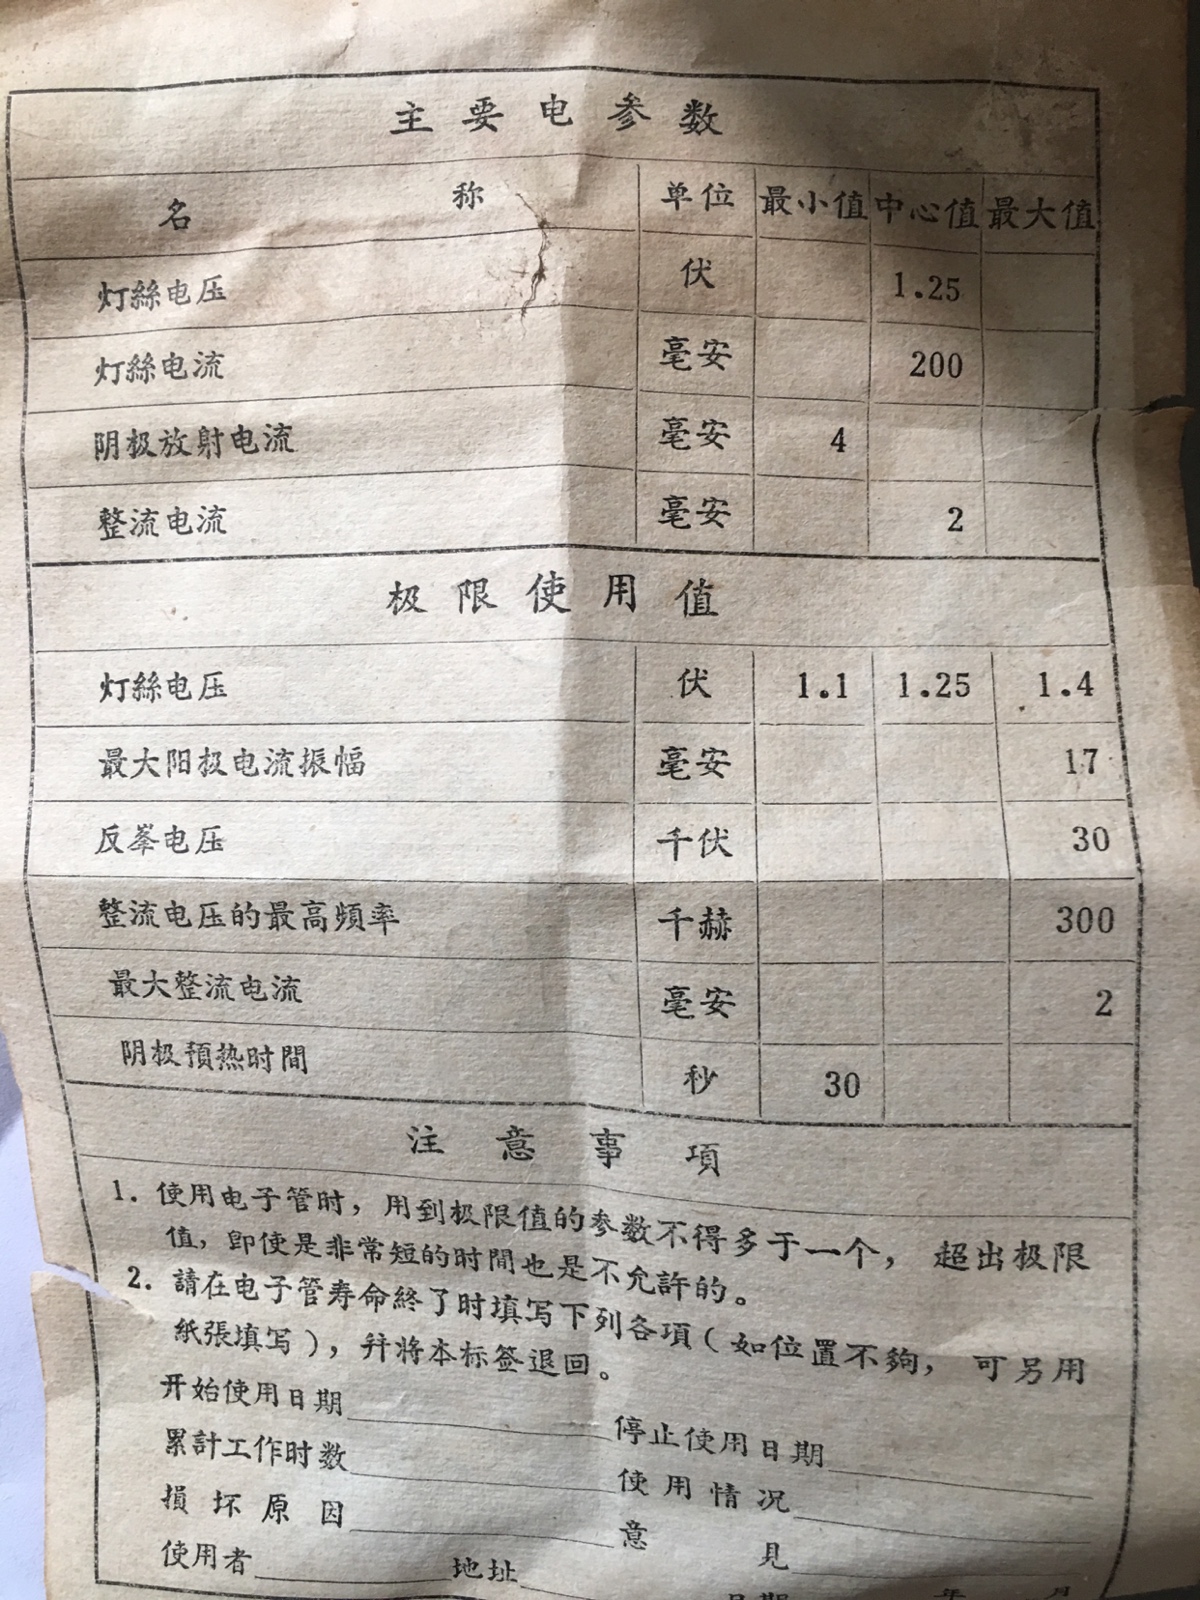 主要电参数
名称 单位 最小值 中心值 最大值
灯絲电压 伏 1.25
灯絲电流 毫安 200
阴极放射电流 毫安 4
整流电流 毫安 2
极限使用值
灯絲电压 伏 1.1 1.25 1.4
最大阳极电流振幅 毫安 17
反峯电压 千伏 30
整流电压的最高頻率 千赫 300
最大整流电流 毫安 2
阴极預热时間 秒 30
注意事項
1. 使用电子管时，用到极限值的参数不得多于一个，超出极限
值，即使是非常短的时間也是不允許的。
2. 請在电子管寿命終了时填写下列各項（如位置不夠，可另用
紙張填写），幷將本标签退回。
开始使用日期 停止使用日期
累計工作时数 使用情况
損坏原因 意見
使用者 地址
日期 年 月